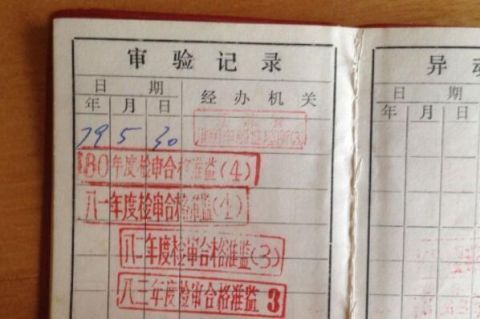 审验记录
日期
年月日
经办机关
79 5 30
80年度检审合格准监(4)
八一年度检审合格准监(1)
八二年度检审合格准监(3)
八三年度验审合格准监3
异动